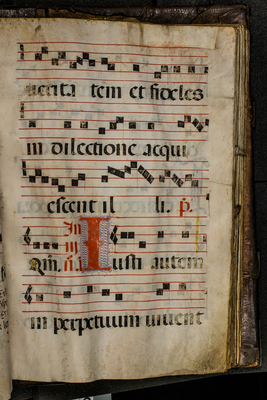 verita tem et fideles
in dilectione acqui
escent il li. p̄.
In
iij
Qm̄. n̄. Iusti autem
in perpetuum vivent